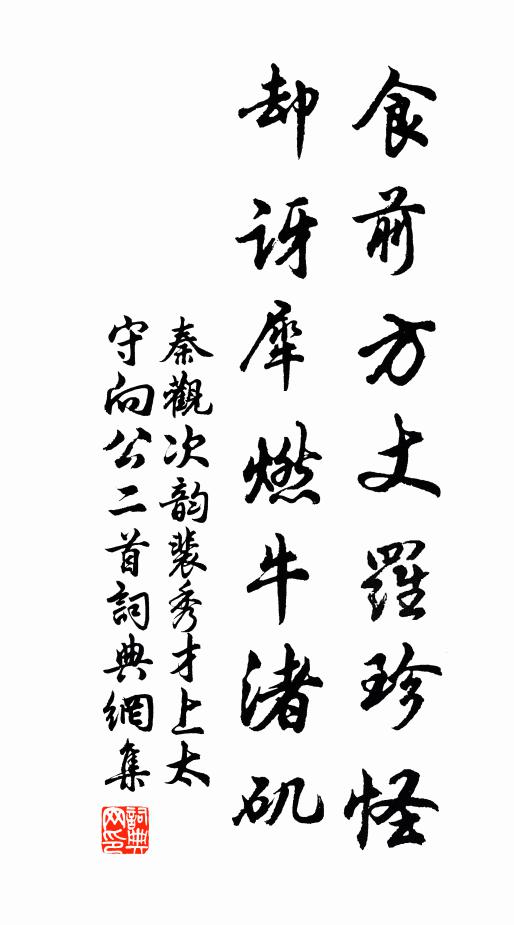 食前方丈羅珍怪
却訝犀燃牛渚矶
秦觀次韵裴秀才上太
守向公二首詞典網集
詞典网印